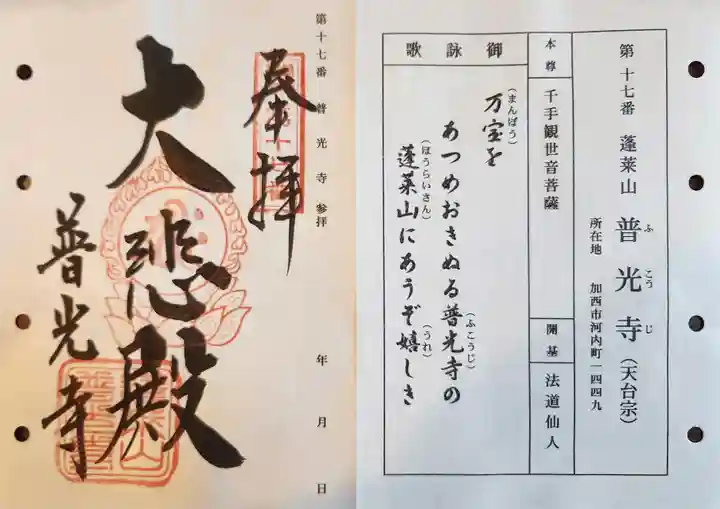 第十七番 蓬莱山 普光寺(天台宗)
ふ こう じ
所在地 加西市河内町一四四九
本尊 千手観世音菩薩
開基 法道仙人
御詠歌
万宝を
(まんぽう)
あつめおきぬる普光寺の
(ふこうじ)
蓬莱山にあうぞ嬉しき
(ほうらいさん)
(うれ)
第十七番 普光寺参拝 年 月 日
奉拝
大悲殿
普光寺